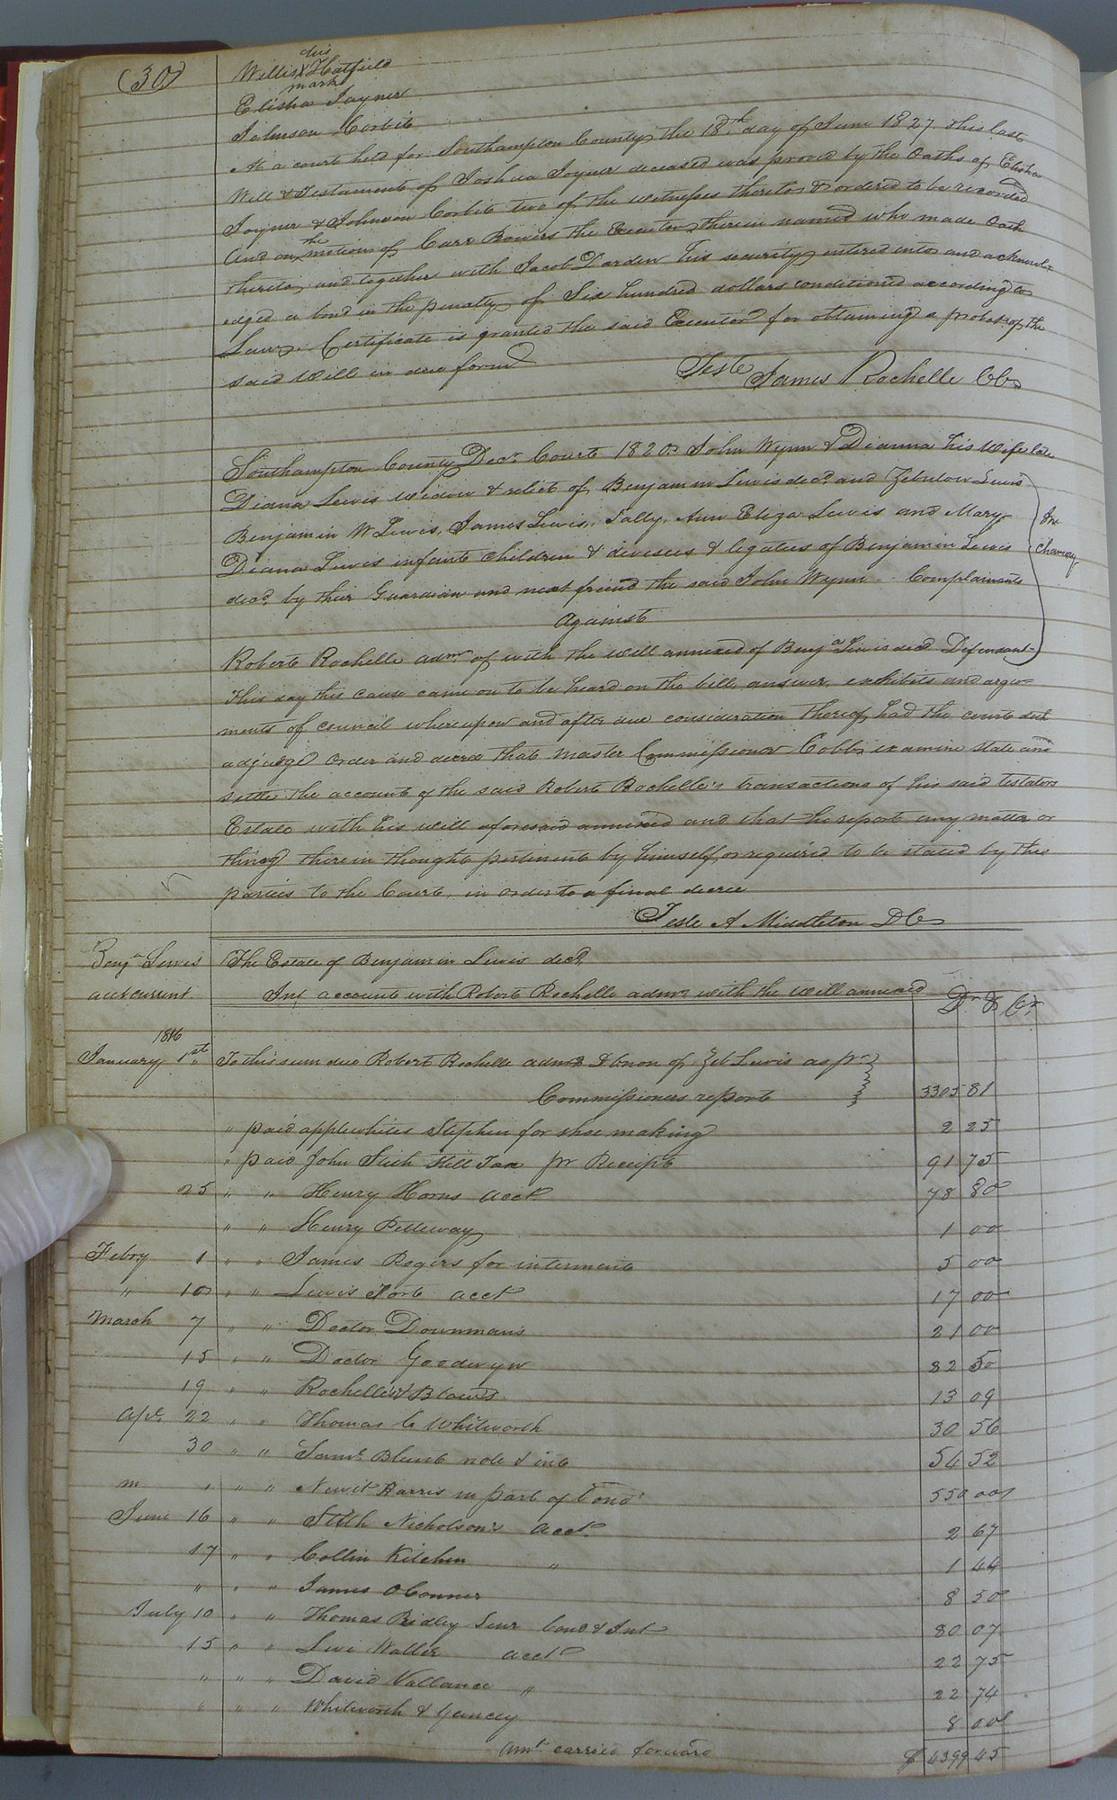 (30)
his
Willis X Hatfield
mark
Elisha Joyner
Johnson Corbit
At a court held for Southampton County the 18th day of June 1827 This last
Will & Testament of Joshua Joyner deceased was proved by the Oaths of Elisha
Joyner & Johnson Corbit two of the witnesses thereto & ordered to be recorded
And on the motion of Carr Bowers the Executor therein named who made Oath
thereto, and together with Jacob Darden his security entered into and acknowl-
edged a bond in the penalty of Six hundred dollars conditioned according to
Law. Certificate is granted the said Executor for obtaining a probate of the
said Will in due form
Teste James Rochelle CC
Southampton County Decr. Court 1820. John Wynn & Dianna his Wife late
Diana Lewis widow & relict of Benjamin Lewis decd. and Zebulon Lewis
Benjamin W Lewis, James Lewis, Sally, Ann Eliza Lewis and Mary
Diana Lewis infants children & devisees & legatees of Benjamin Lewis
decd. by their Guardian and next friend the said John Wynn Complainants
In
Chancey
Against
Robert Rochelle admr. of with the will annexed of Benja Lewis decd Defendant
This day this cause came on to be heard on the bill, answer, exhibits and argu-
ments of council whereupon and after due consideration thereof had the court doth
adjudge order and decree that Master Commissioner Cobbs examine state and
settle the accounts of the said Robert Rochelle's transactions of his said testators
Estate with his will aforesaid annexed and that he report any matter or
thing therein thought pertinent by himself or required to be stated by the
parties to the Court, in order to a final decree
Teste A Middleton DC
Benja Lewis The Estate of Benjamin Lewis decd.
acct current In account with Robert Rochelle admr. with the will annexed Dr & Cr
1816
January 1st To this sum due Robert Rochelle admr & bnon of Zeb Lewis as pr
Commissioners report 3305 81
" paid applewhites Stephen for shoe making 2 25
" paid John Stith Still Tax pr Receipt 91 75
25 " " Henry Horns acct 78 80
" " Henry Pettway 1 00
Febry 1 " " James Rogers for interment 5 00
" 10 " " Lewis Fort acct 17 00
March 7 " " Doctor Downmans 21 00
15 " " Doctor Goodwyn 82 50
19 " " Rochelle & Blows 13 09
Apr. 22 " " Thomas C Whitworth 30 56
30 " " Saml Blunt note & int 54 52
m " " " Newit Harris in part of bond 550 00
June 16 " " Stith Nicholson's acct. 2 67
17 " " Collin Kitchen " 1 44
" " " James OConner 8 50
July 10 " " Thomas Ridley Senr bond & Int 80 07
15 " " Levi Waller acct 22 75
" " " David Vallance " 22 74
" " " Whitworth & Yancey 8 00
Amt carried forward $ 4399 45